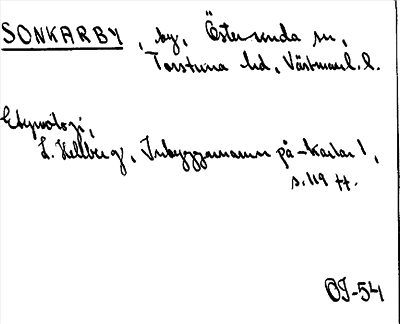 SONKARBY, by, Österunda sn,
Torstuna hd, Västmanl. l.
Etymologi,
L. Hellberg, Inbyggarnamn på -karlar 1,
s. 119 ff.
OJ-54